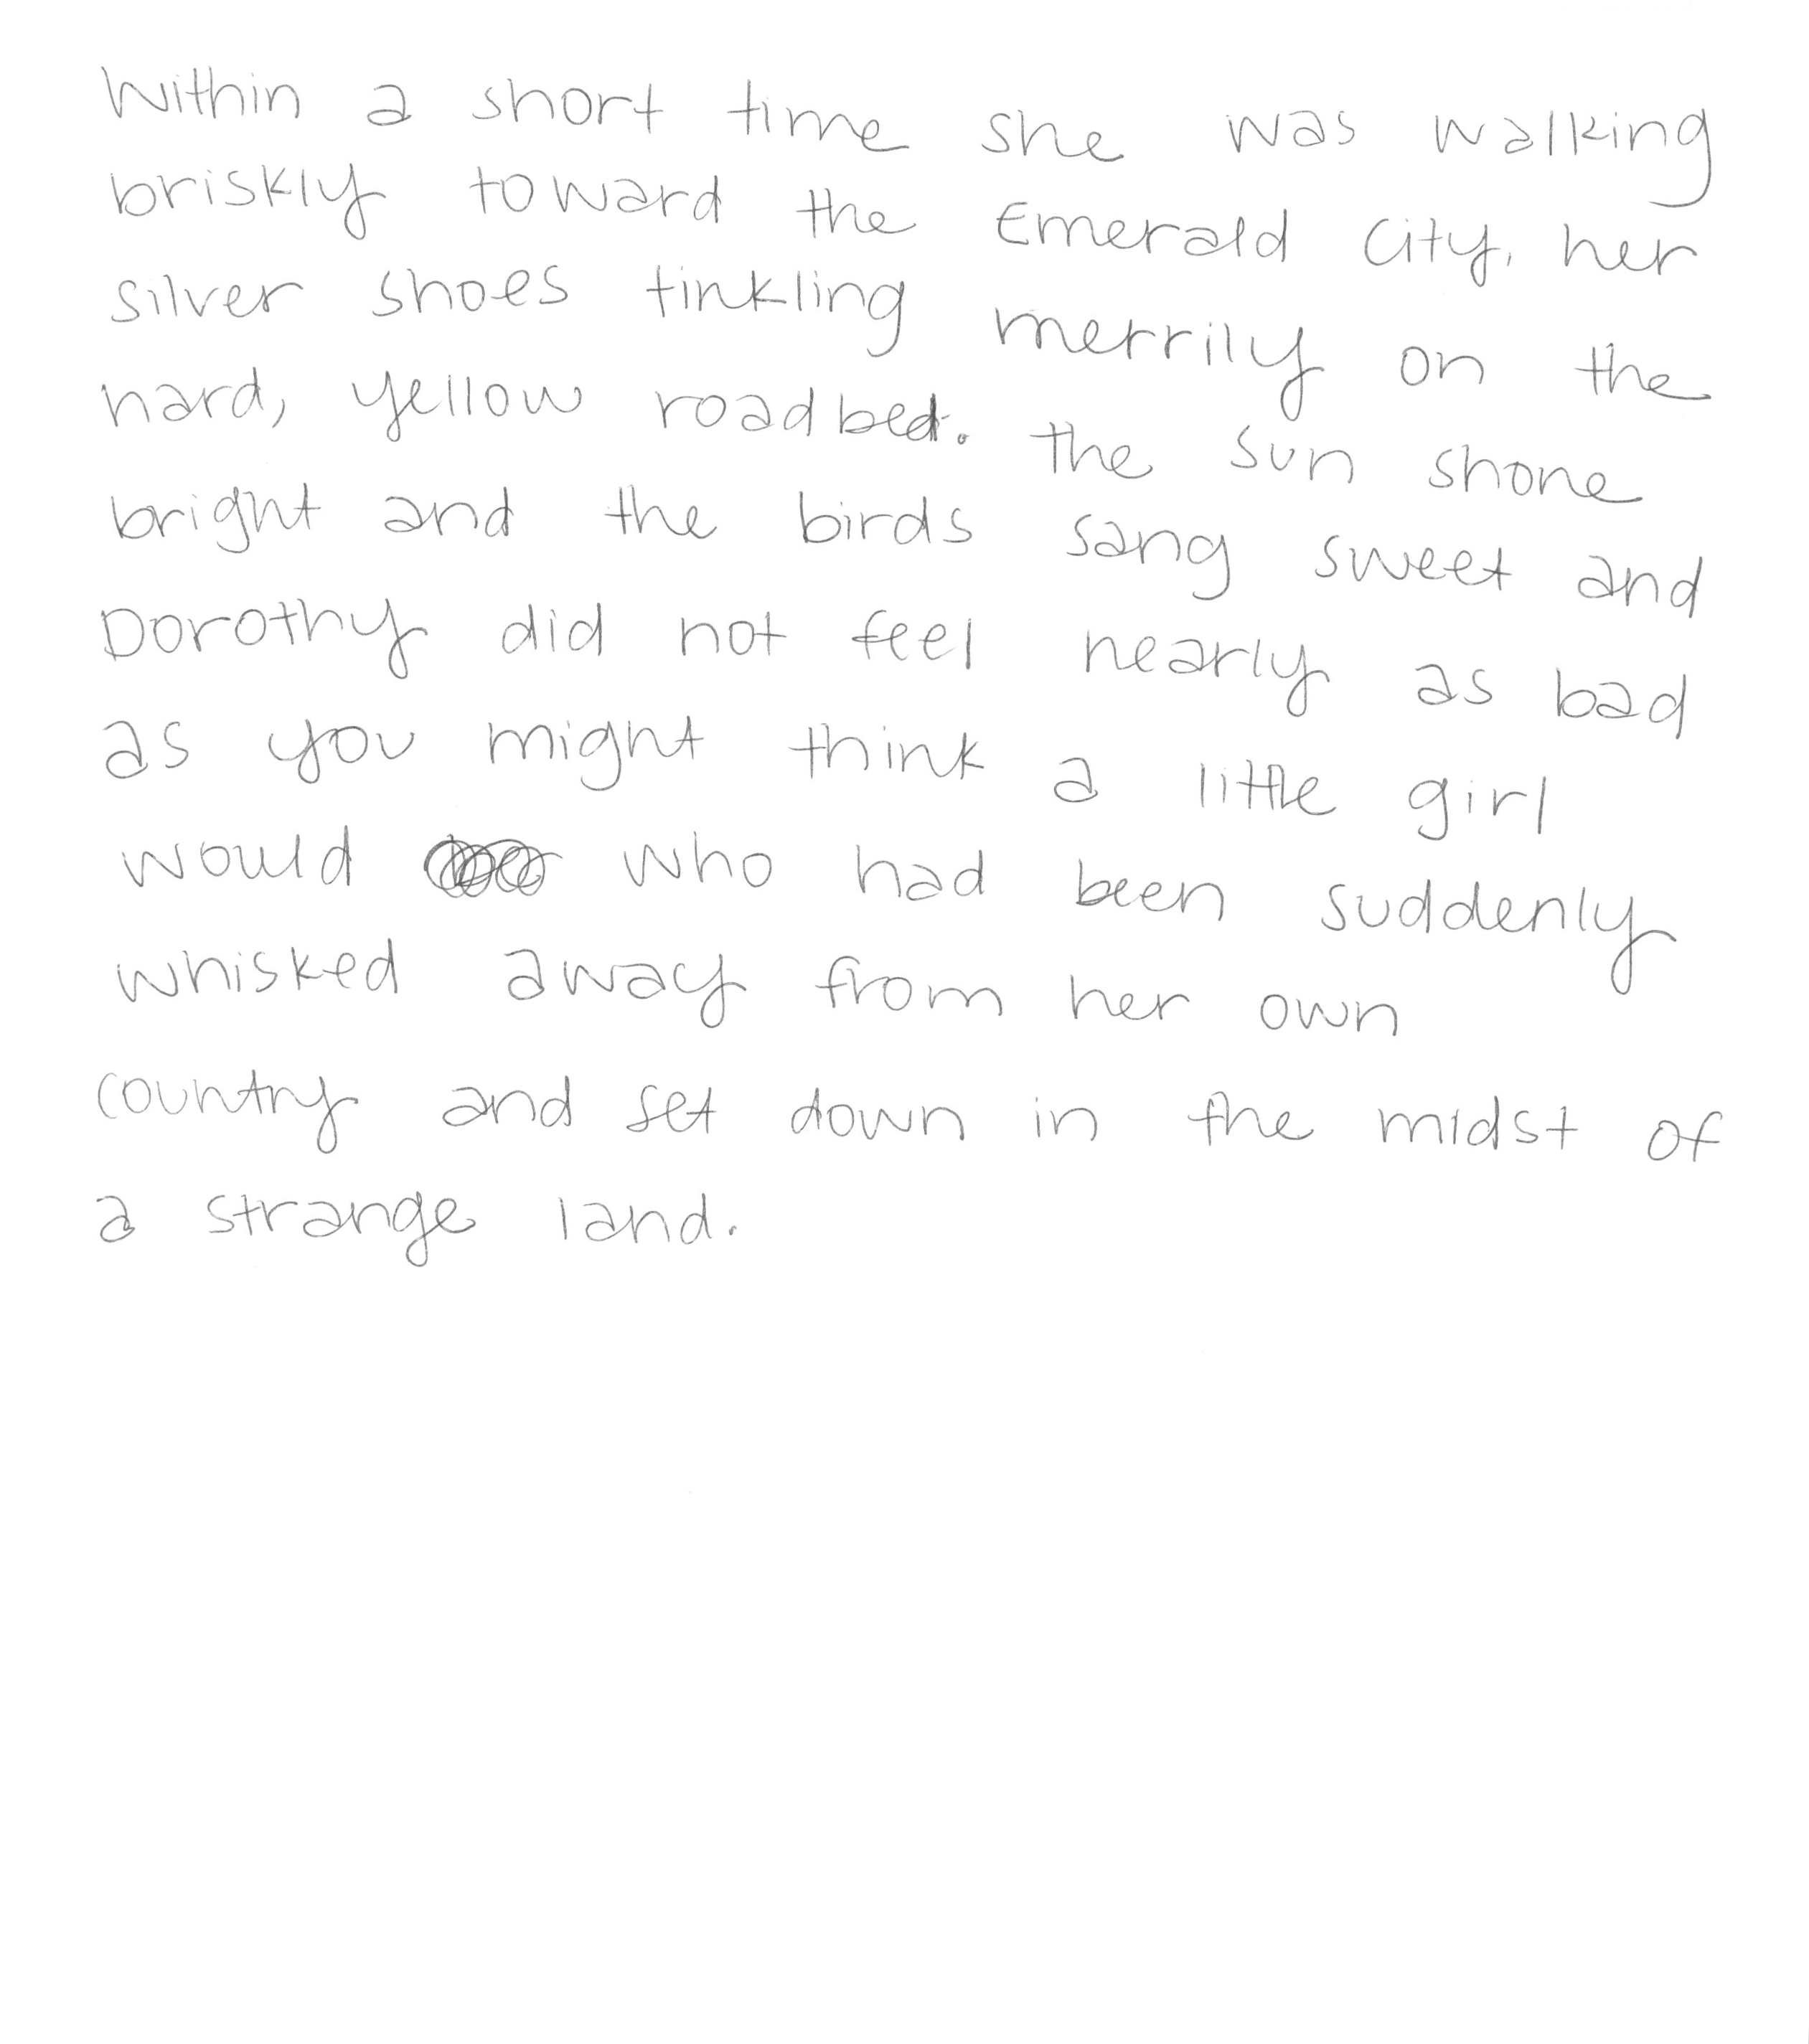 Within a short time she was walking
briskly toward the Emerald City, her
silver shoes tinkling merrily on the
hard, yellow roadbed. The sun shone
bright and the birds sang sweet and
Dorothy did not feel nearly as bad
as you might think a little girl
would who had been suddenly
whisked away from her own
country and set down in the midst of
a strange land.